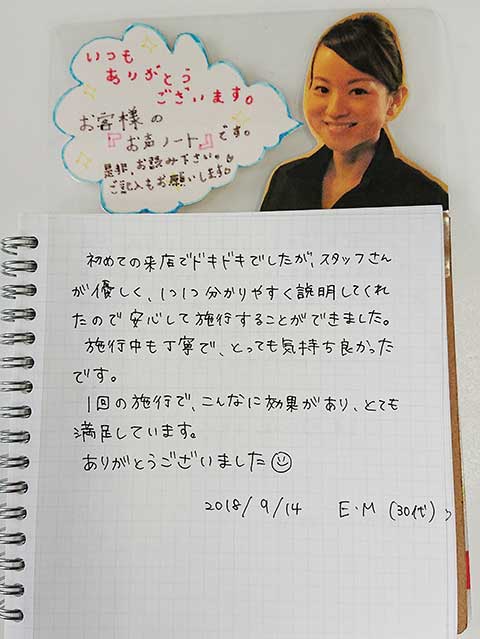 いつも
ありがとう
ございます。
お客様の
『お声ノート』です。
是非、お読み下さい。
ご記入もお願いします。
初めての来店でドキドキでしたが、スタッフさん
が優しく、1つ1つ分かりやすく説明してくれ
たので安心して施行することができました。
施行中も丁寧で、とっても気持ち良かった
です。
1回の施行で、こんなに効果があり、とても
満足しています。
ありがとうございました☺
2018/9/14 E・M (30代)